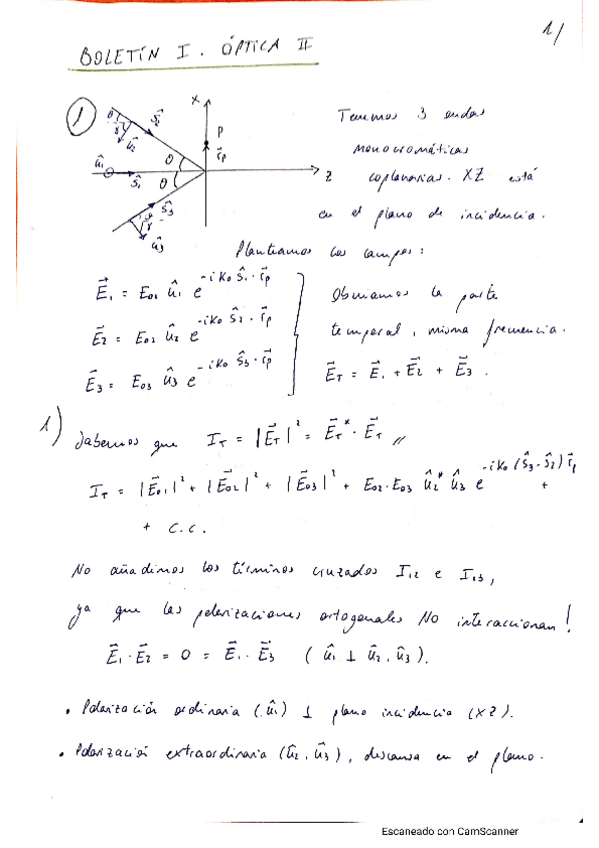 1/
BOLETÍN I. ÓPTICA II
1
X
P
r⃗p
Z
θ
θ
θ
γ
û2
ŝ2
û1
ŝ1
ŝ3
γ
û3
Tenemos 3 ondas
monocromáticas
coplanarias. XZ está
en el plano de incidencia.
Planteamos los campos:
E⃗1 = E01 û1 e^(-i K0 ŝ1 · r⃗p)
E⃗2 = E02 û2 e^(-i K0 ŝ2 · r⃗p)
E⃗3 = E03 û3 e^(-i K0 ŝ3 · r⃗p)
Obviamos la parte
temporal, misma frecuencia.
E⃗T = E⃗1 + E⃗2 + E⃗3.
1) Sabemos que IT = |E⃗T|² = E⃗T* · E⃗T //
IT = |E⃗01|² + |E⃗02|² + |E⃗03|² + E02·E03 û2* û3 e^(-i K0 (ŝ3 - ŝ2) r⃗p) +
+ c.c.
No añadimos los términos cruzados I12 e I13,
ya que las polarizaciones ortogonales NO interaccionan!
E⃗1 · E⃗2 = 0 = E⃗1 · E⃗3 (û1 ⊥ û2, û3).
• Polarización ordinaria (û1) ⊥ plano incidencia (XZ).
• Polarización extraordinaria (û2, û3), descansa en el plano.
Escaneado con CamScanner